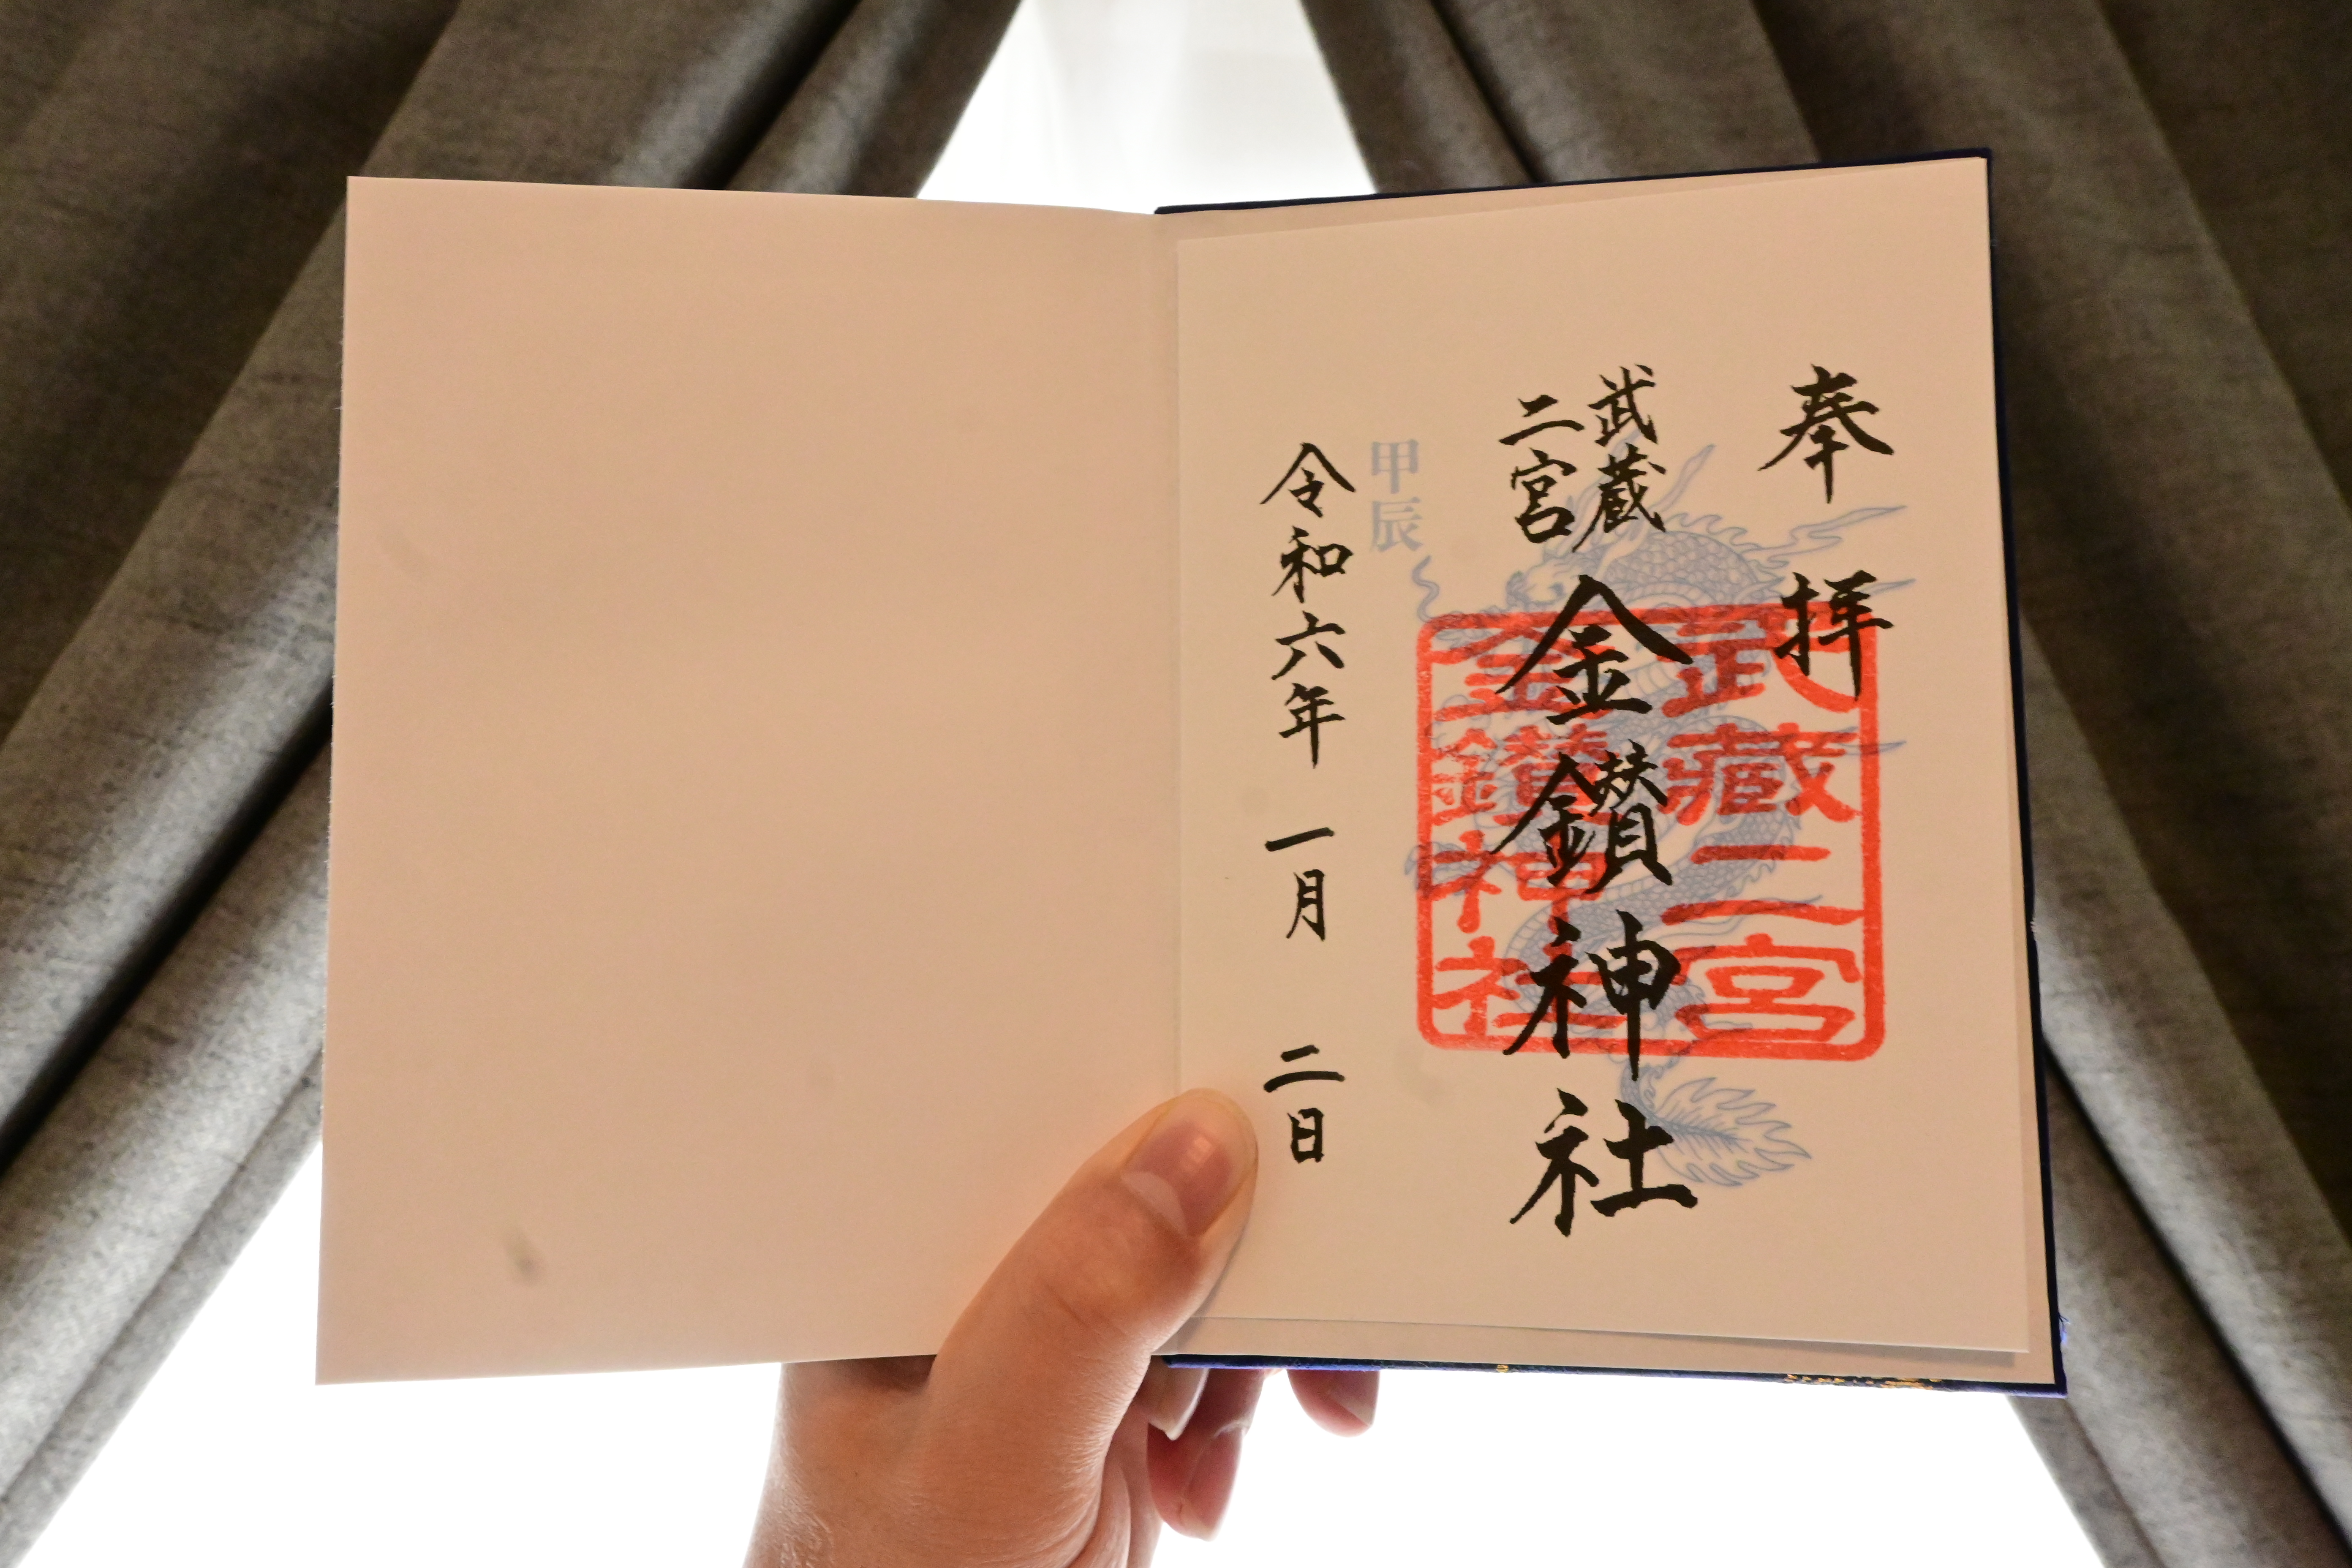 奉拝
武蔵
二宮
金鑚神社
武藏二宮
金鑚神社
甲辰
令和六年 一月 二日